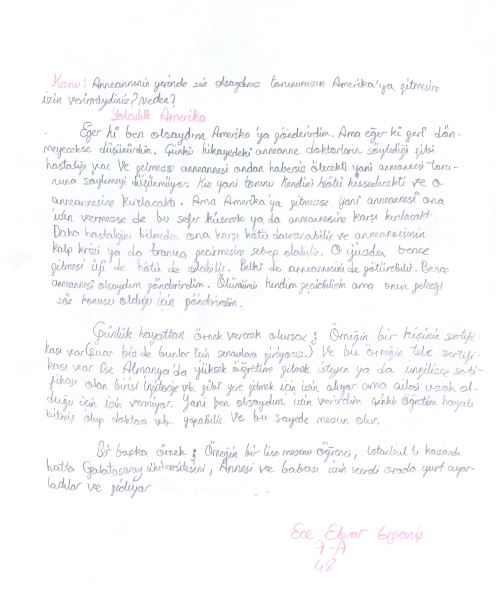 Konu: Anneannenin yerinde siz olsaydınız torununuzun Amerika'ya gitmesine
izin verirmiydiniz? Neden?
Yolculuk Amerika
Eğer ki ben olsaydım Amerika'ya gönderirdim. Ama eğer ki geri dön-
meyecekse düşünürdüm. Çünkü hikayedeki anneanne doktorların söylediği gibi
hastalığı var. Ve gelmezse anneannesi ondan habersiz ölecekti yani anneannesi toru-
nuna söylemeyi düşünmüyor. Kız yani torunu kendini kötü hissedecekti ve o
anneannesine kırılacaktı. Ama Amerika'ya gitmezse yani anneannesi ona
izin vermezse de bu sefer küsecek ya da anneannesine karşı kırılacaktı.
Daha hastalığını bilmeden ona karşı kötü davranabilir ve anneannesinin
kalp krizi ya da travma geçirmesine sebep olabilir. O yüzden bence
gitmesi iyi de kötü de olabilir. Belki de anneannesini de götürebilir. Bence
anneannesi olsaydım gönderirdim. Ölümünü kendim geçebilirim ama onun geleceği
söz konusu olduğu için gönderirdim.
Günlük hayattan örnek verecek olursak; Örneğin bir kişinin sertifi-
kası var (şuar biz de bunlar için sınavlara giriyoruz.) Ve bu örneğin tabe sertifi-
kası var ise Almanya'da yüksek öğretime gitmek isteyen ya da ingilizce serti-
fikası olan birisi İngiltere vb. gibi yere gitmek için izin alıyor ama ailesi uzak ol-
duğu için izin vermiyor. Yani ben olsaydım izin verirdim çünkü öğretim hayatı
bitmiş olup doktora vb. yapabilir ve bu sayede mezun olur.
Bir başka örnek; Örneğin bir lise mezunu öğrenci, İstanbul'u kazandı
hatta Galatasaray Üniversitesini, Annesi ve babası izin verdi orada yurt ayar-
ladılar ve gidiyor
Ece
7-A
48